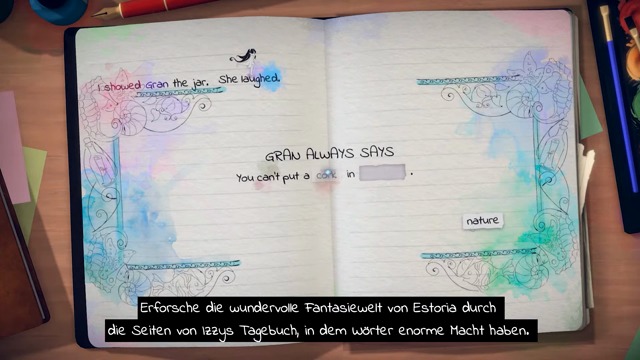 I showed Gran the jar. She laughed.
GRAN ALWAYS SAYS
You can't put a cork in .
nature
Erforsche die wundervolle Fantasiewelt von Estoria durch
die Seiten von Izzys Tagebuch, in dem Wörter enorme Macht haben.